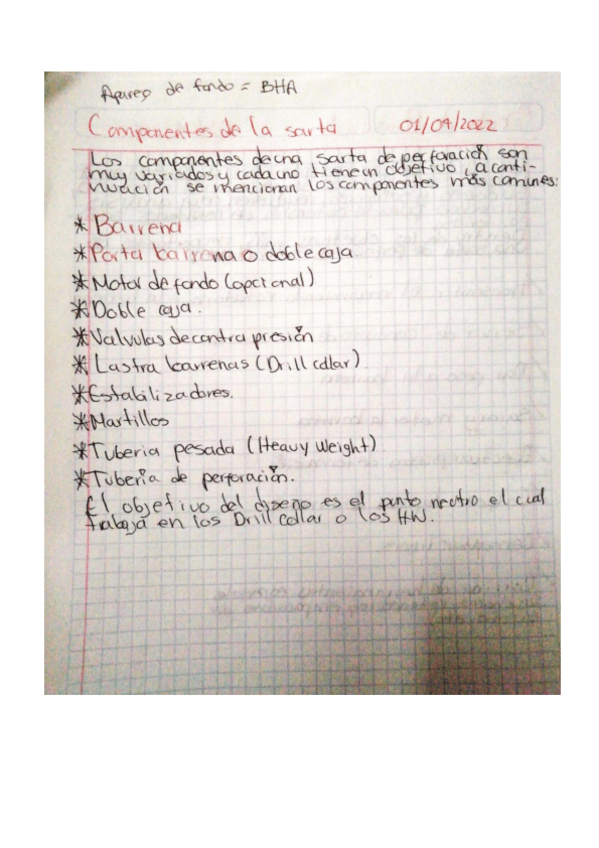 Aparejo de fondo = BHA
Componentes de la sarta 01/04/2022
Los componentes de una sarta de perforación son
muy variados y cada uno tiene un objetivo, a conti-
nuación se mencionan los componentes más comunes:
* Barrena
* Porta barrena o doble caja
* Motor de fondo (opcional)
* Doble caja.
* Valvulas de contra presión
* Lastra barrenas (Drill collar).
* Estabilizadores.
* Martillos
* Tuberia pesada (Heavy Weight)
* Tubería de perforación.
El objetivo del diseño es el punto neutro el cual
trabaja en los Drill Collar o los HW.